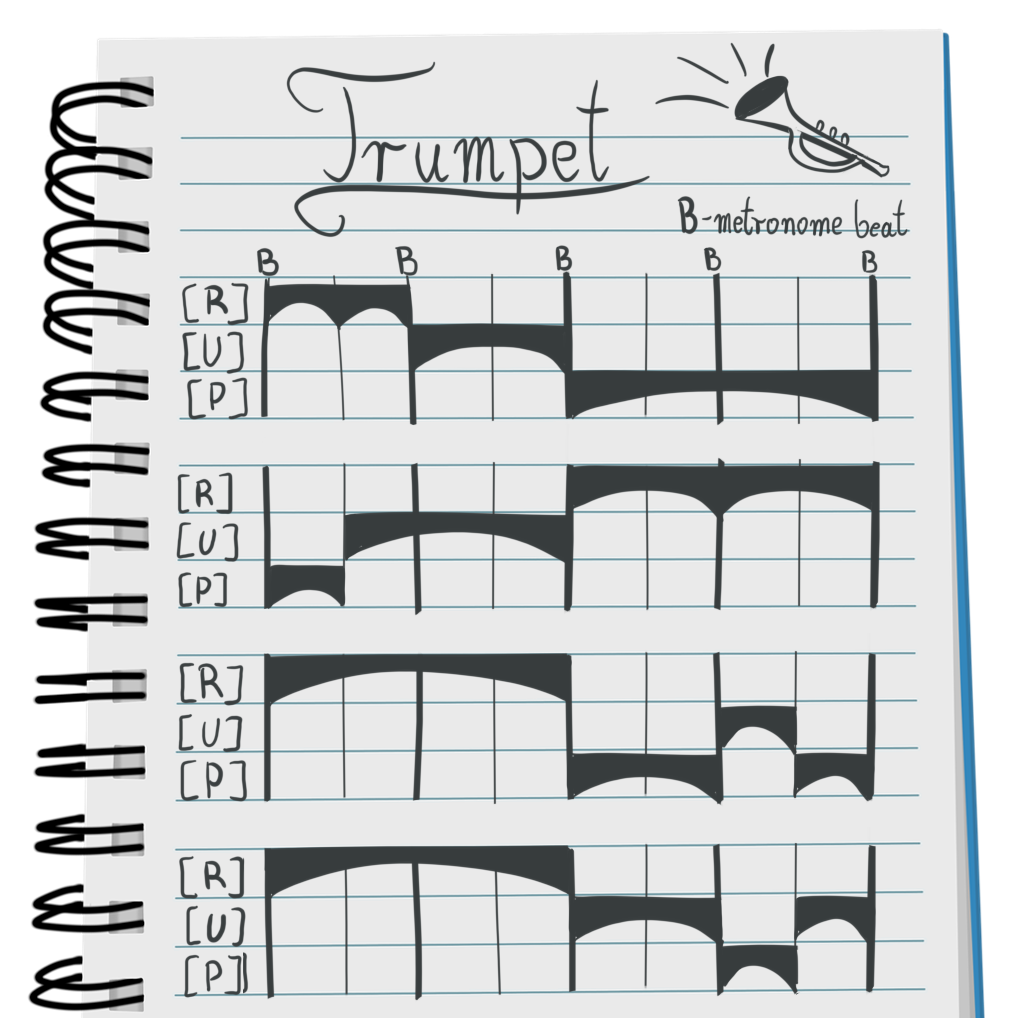 Trumpet
B-metronome beat
B B B B B
[R]
[U]
[P]
[R]
[U]
[P]
[R]
[U]
[P]
[R]
[U]
[P]